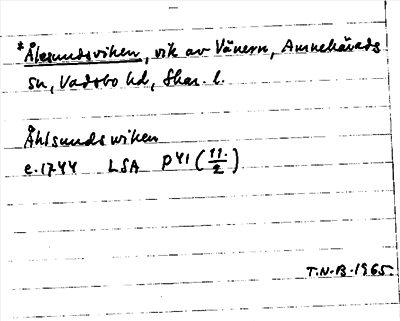 *Ålesundsviken, vik av Vänern, Amnehärads
sn, Vadsbo hd, Skar. l.
Åhlsunds wiken
c. 1744 LSA P41 (11/2)
T.N.B. 1965.